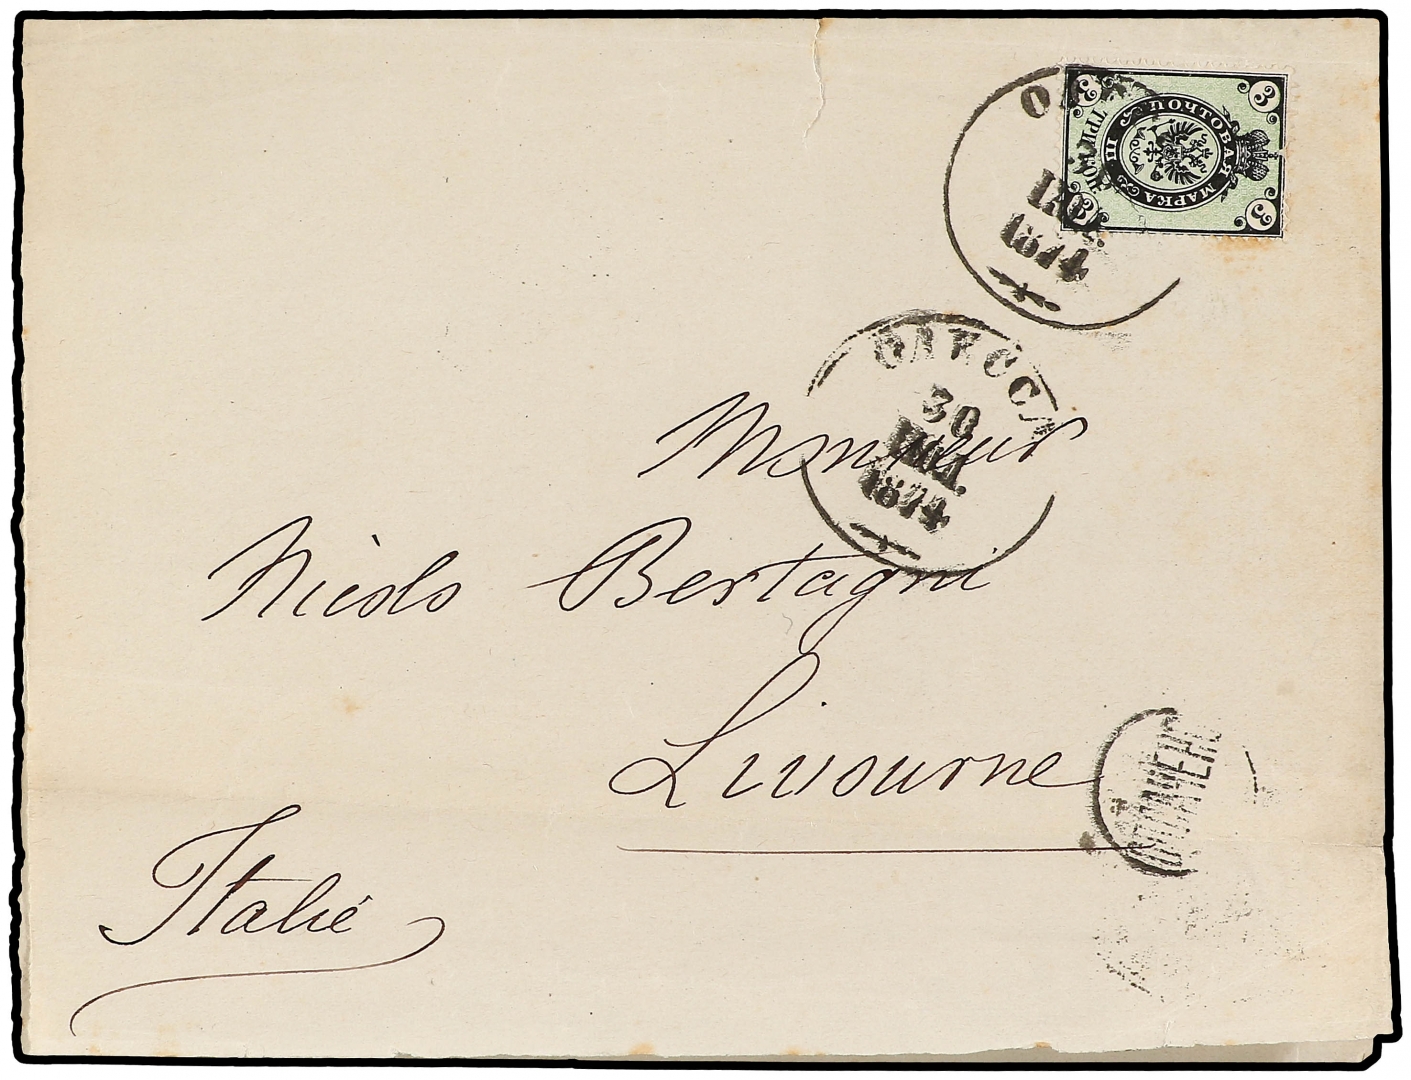 3 3
ПОЧТОВАЯ МАРКА
ТРИ КОП
3 3
1874
ОДЕССА
30
ІЮЛ.
1874
Monsieur
Nicolo Bertagni
Livourne
Italie